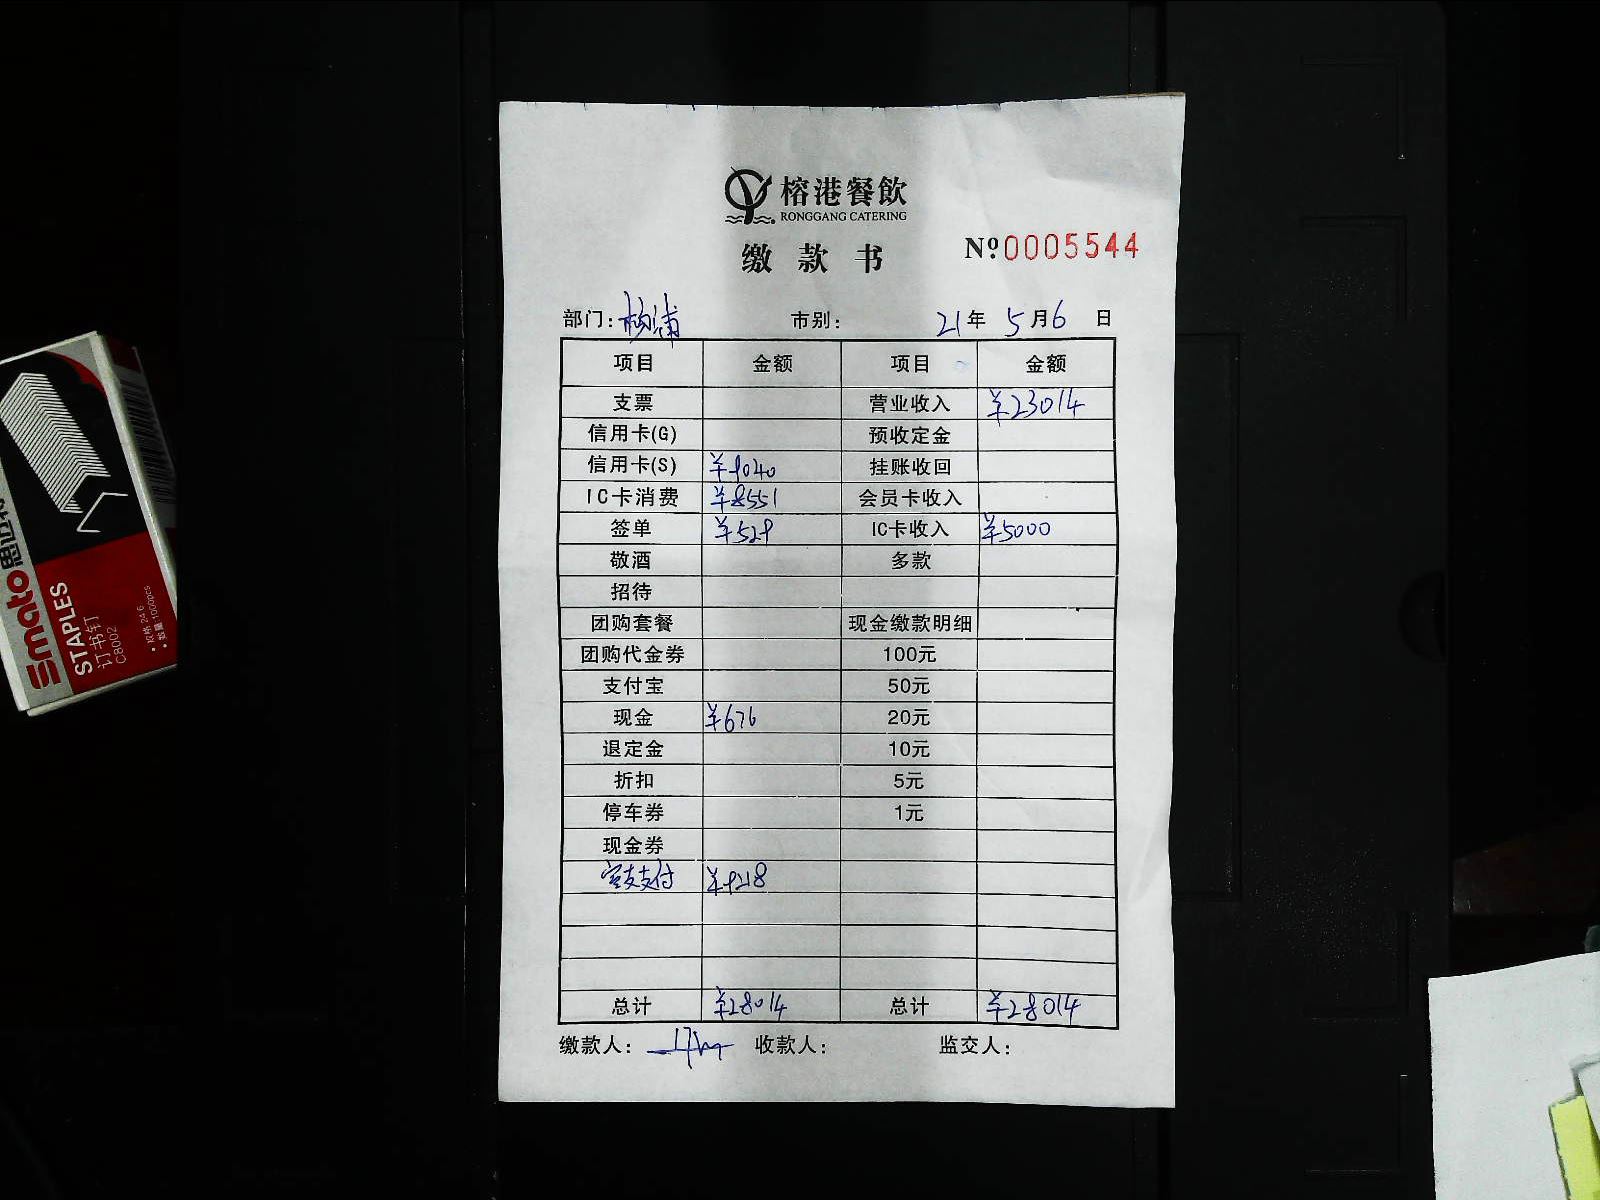 榕港餐飲
RONGGANG CATERING
缴款书
Nº0005544
部门: 杨浦 市别: 21年 5月6日
项目 金额 项目 金额
支票 营业收入 ¥23014
信用卡(G) 预收定金
信用卡(S) ¥9040 挂账收回
IC卡消费 ¥8551 会员卡收入
签单 ¥529 IC卡收入 ¥5000
敬酒 多款
招待
团购套餐 现金缴款明细
团购代金券 100元
支付宝 50元
现金 ¥676 20元
退定金 10元
折扣 5元
停车券 1元
现金券
支付 ¥9218
总计 ¥28014 总计 ¥28014
缴款人: 收款人: 监交人:
Smato
STAPLES
订书钉
C8002
•规格:24/6
•数量:1000pcs